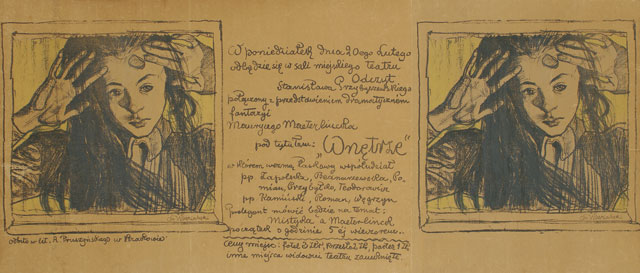 W poniedziałek dnia 20ego Lutego
odbędzie się w sali miejskiego teatru
Odczyt
Stanisława Przybyszewskiego
połączony z przedstawieniem dramatycznem
fantazyi
Maurycego Maeterlincka
pod tytułem: „Wnętrze”
w którem wezmą łaskawy współudział
pp. Zapolska, Bednarzewska, Po-
mian, Przybyłko,
pp Kamiński, Roman, Węgrzyn
Prelegent mówić będzie na temat
Mistyka a Maeterlinck
początek o godzinie 5ej wieczorem.
ceny miejsc: fotel 3 złr, krzesło 2 zł, parter 1 zł
inne miejsca widowni teatru zamknięte.
Odbito w lit. A. Pruszyńskiego w Krakowie